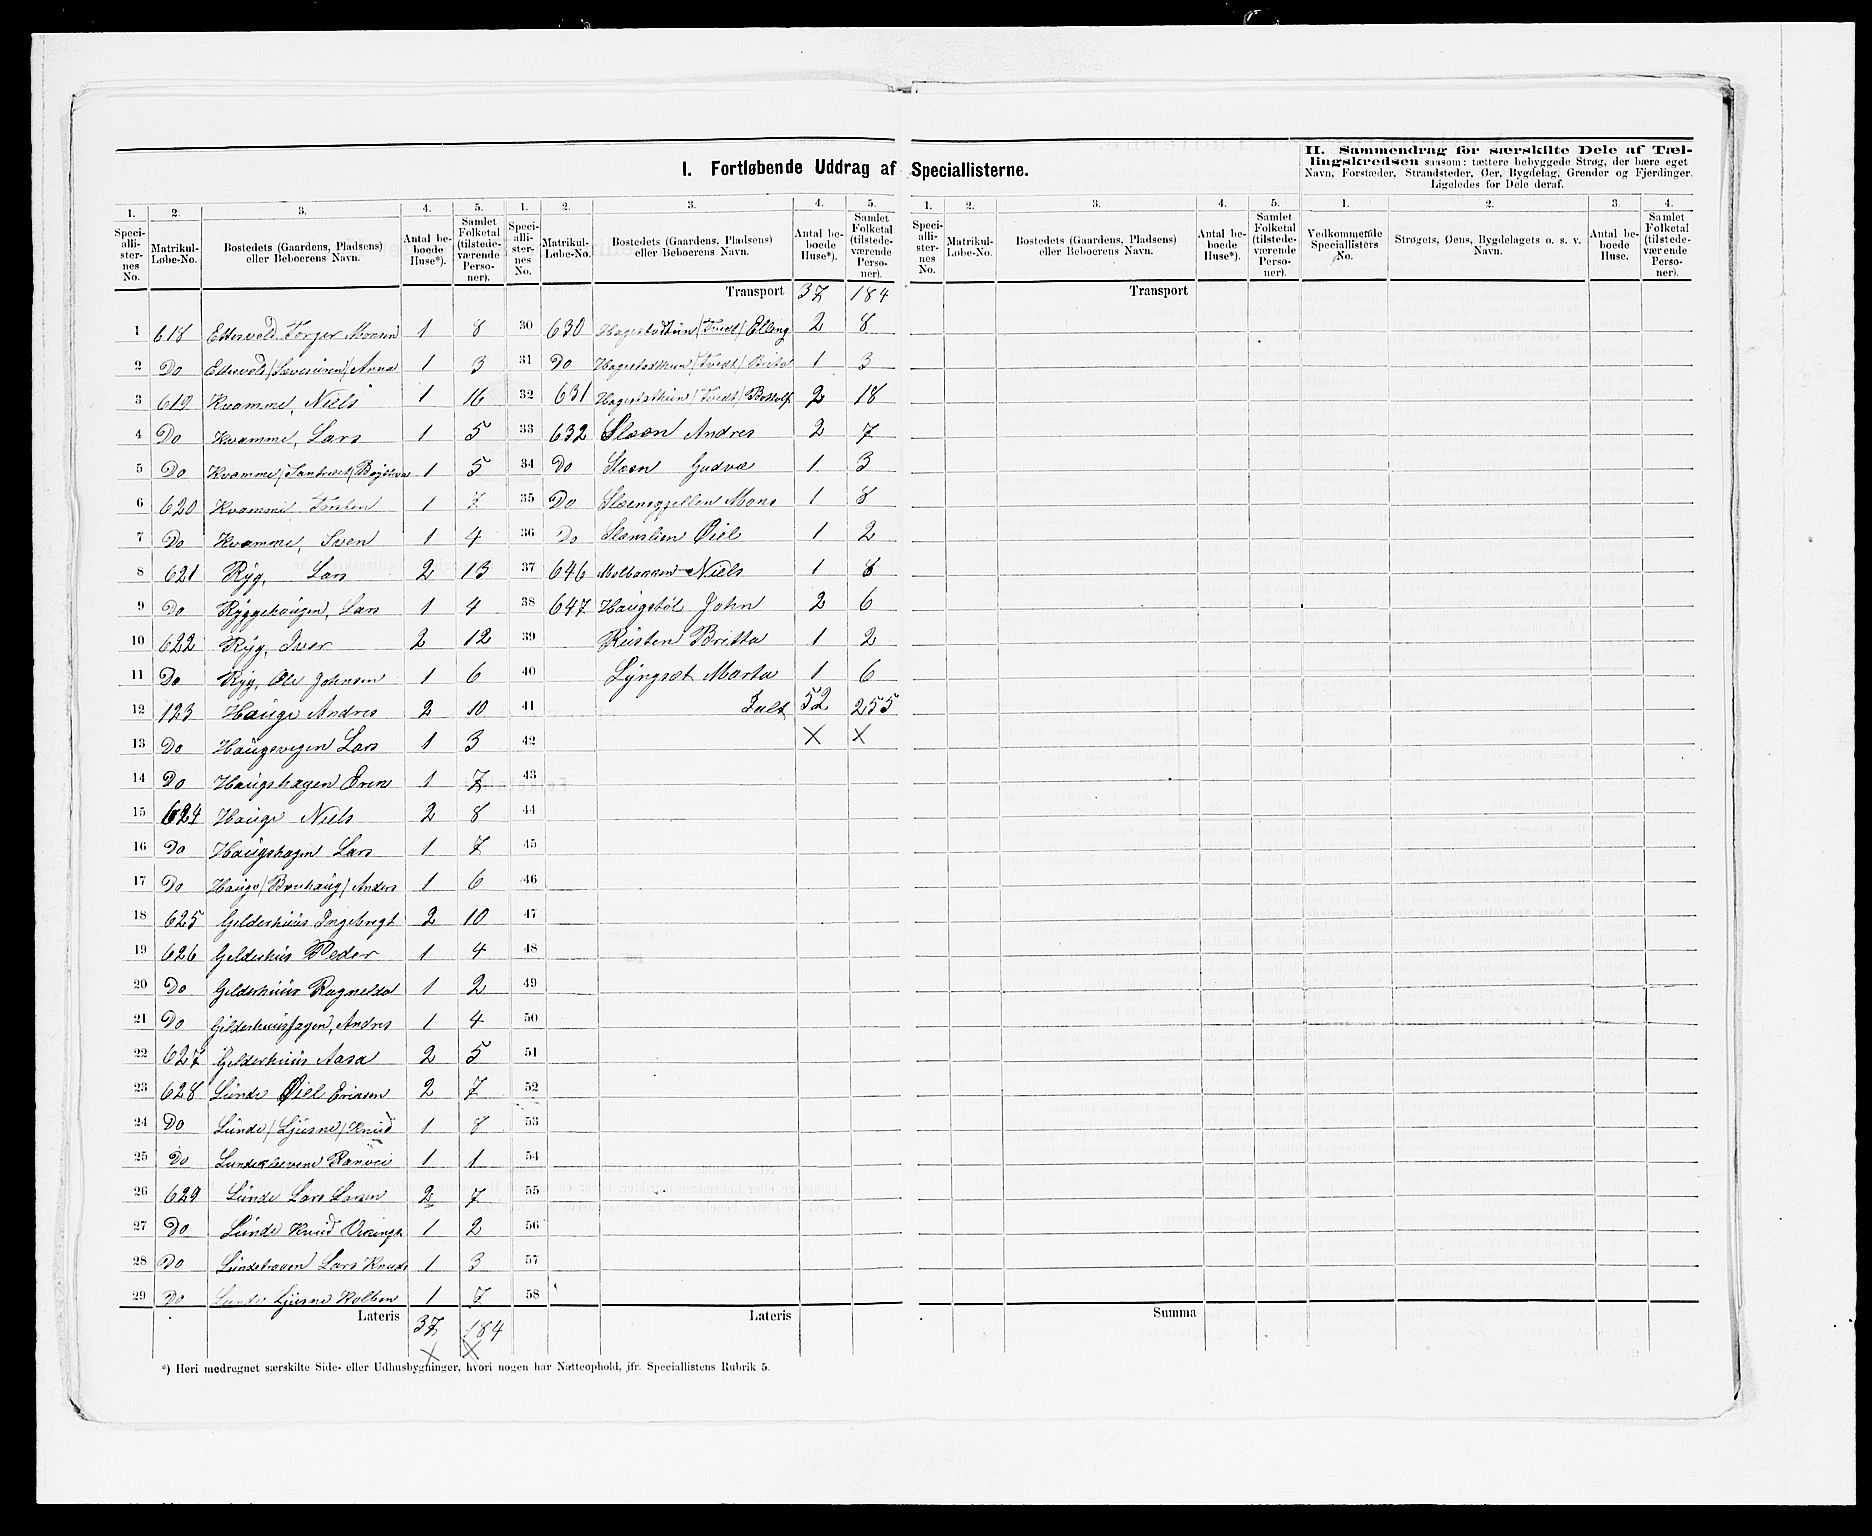 I. Fortløbende Uddrag af Speciallisterne.
II. Sammendrag for særskilte Dele af Tæl-
lingskredsen saasom: tættere bebyggede Strøg, der bære eget
Navn, Forstæder, Strandsteder, Øer, Bygdelag, Grender og Fjerdinger.
Ligeledes for Dele deraf.
1. 2. 3. 4. 5. 1. 2. 3. 4. 5. 1. 2. 3. 4. 5. 1. 2. 3. 4.
Speci-allli-ster-nes No. Matrikul-Løbe-No. Bostedets (Gaardens, Pladsens) eller Beboerens Navn. Antal be-boede Huse*). Samlet Folketal (tilstede-værende Perso-ner).
Speci-alli-ster-nes No. Matrikul-Løbe-No. Bostedets (Gaardens, Pladsens) eller Beboerens Navn. Antal be-boede Huse*). Samlet Folketal (tilstede-værende Perso-ner).
Speci-alli-ster-nes No. Matrikul-Løbe-No. Bostedets (Gaardens, Pladsens) eller Beboerens Navn. Antal be-boede Huse*). Samlet Folketal (tilstede-værende Perso-ner).
Vedkommende Speciallisters No. Strøgets, Øens, Bygdelagets o. s. v. Navn. Antal be-boede Huse. Samlet Folketal (tilstede-værende Perso-ner).
1 618 Ettesvold Torger Monsen 1 8
2 Do Ettesvold / / Anna 1 3
3 619 Kvamme, Niels 1 16
4 Do Kvamme, Lars 1 5
5 Do Kvamme / / 1 5
6 620 Kvamme 1 7
7 Do Kvamme, Sven 1 4
8 621 Ryg, Lars 2 13
9 Do Ryggehaugen, Lars 1 4
10 622 Ryg, Iver 2 12
11 Do Ryg, Ole Johnsen 1 6
12 123 Hauge Andres 2 10
13 Do Haugevegen Lars 1 3
14 Do Haugshagen Even 1 7
15 624 Hauge Niels 2 8
16 Do Haugshagen Lars 1 7
17 Do Hauge / Bruhaug / Anders 1 6
18 625 Gelderhuus Ingebregt 2 10
19 626 Gelderhus Peder 1 4
20 Do Gelderhuus Ragnelda 1 2
21 Do Gelderhuushagen, Andres 1 4
22 627 Gelderhuus Aasa 2 5
23 628 Lunde Øiel Eriksen 2 7
24 Do Lunde / Ljusne / Knud 1 8
25 Do Ranvei 1 1
26 629 Lunde Lars Larsen 2 7
27 Do Lunde Knud 1 2
28 Do Lars Knuds 1 3
29 Do Lunde Ljusne Kolben 1 7
Lateris 37 184
X X
Transport 37 184
30 630 Hagestadhun / Tvedt / Elling 2 8
31 Do Hagestadhun / Tvedt / Brita 1 3
32 631 Hagestathun / Tvedt / Bottolf 2 18
33 632 Slæen Andres 2 7
34 Do Slæen Gudvæ 1 3
35 Do Slæensgjellen Mons 1 8
36 Do Slænslien Øiel 1 2
37 646 Molbakken Niels 1 8
38 647 Haugstøl John 2 6
39 Rusten Britta 1 2
40 Lyngset Marta 1 6
41 Ialt 52 255
42 X X
43
44
45
46
47
48
49
50
51
52
53
54
55
56
57
58
Lateris
Transport
Summa
*) Heri medregnet særskilte Side- eller Udhusbygninger, hvori nogen har Natteophold, jfr. Speciallistens Rubrik 5.